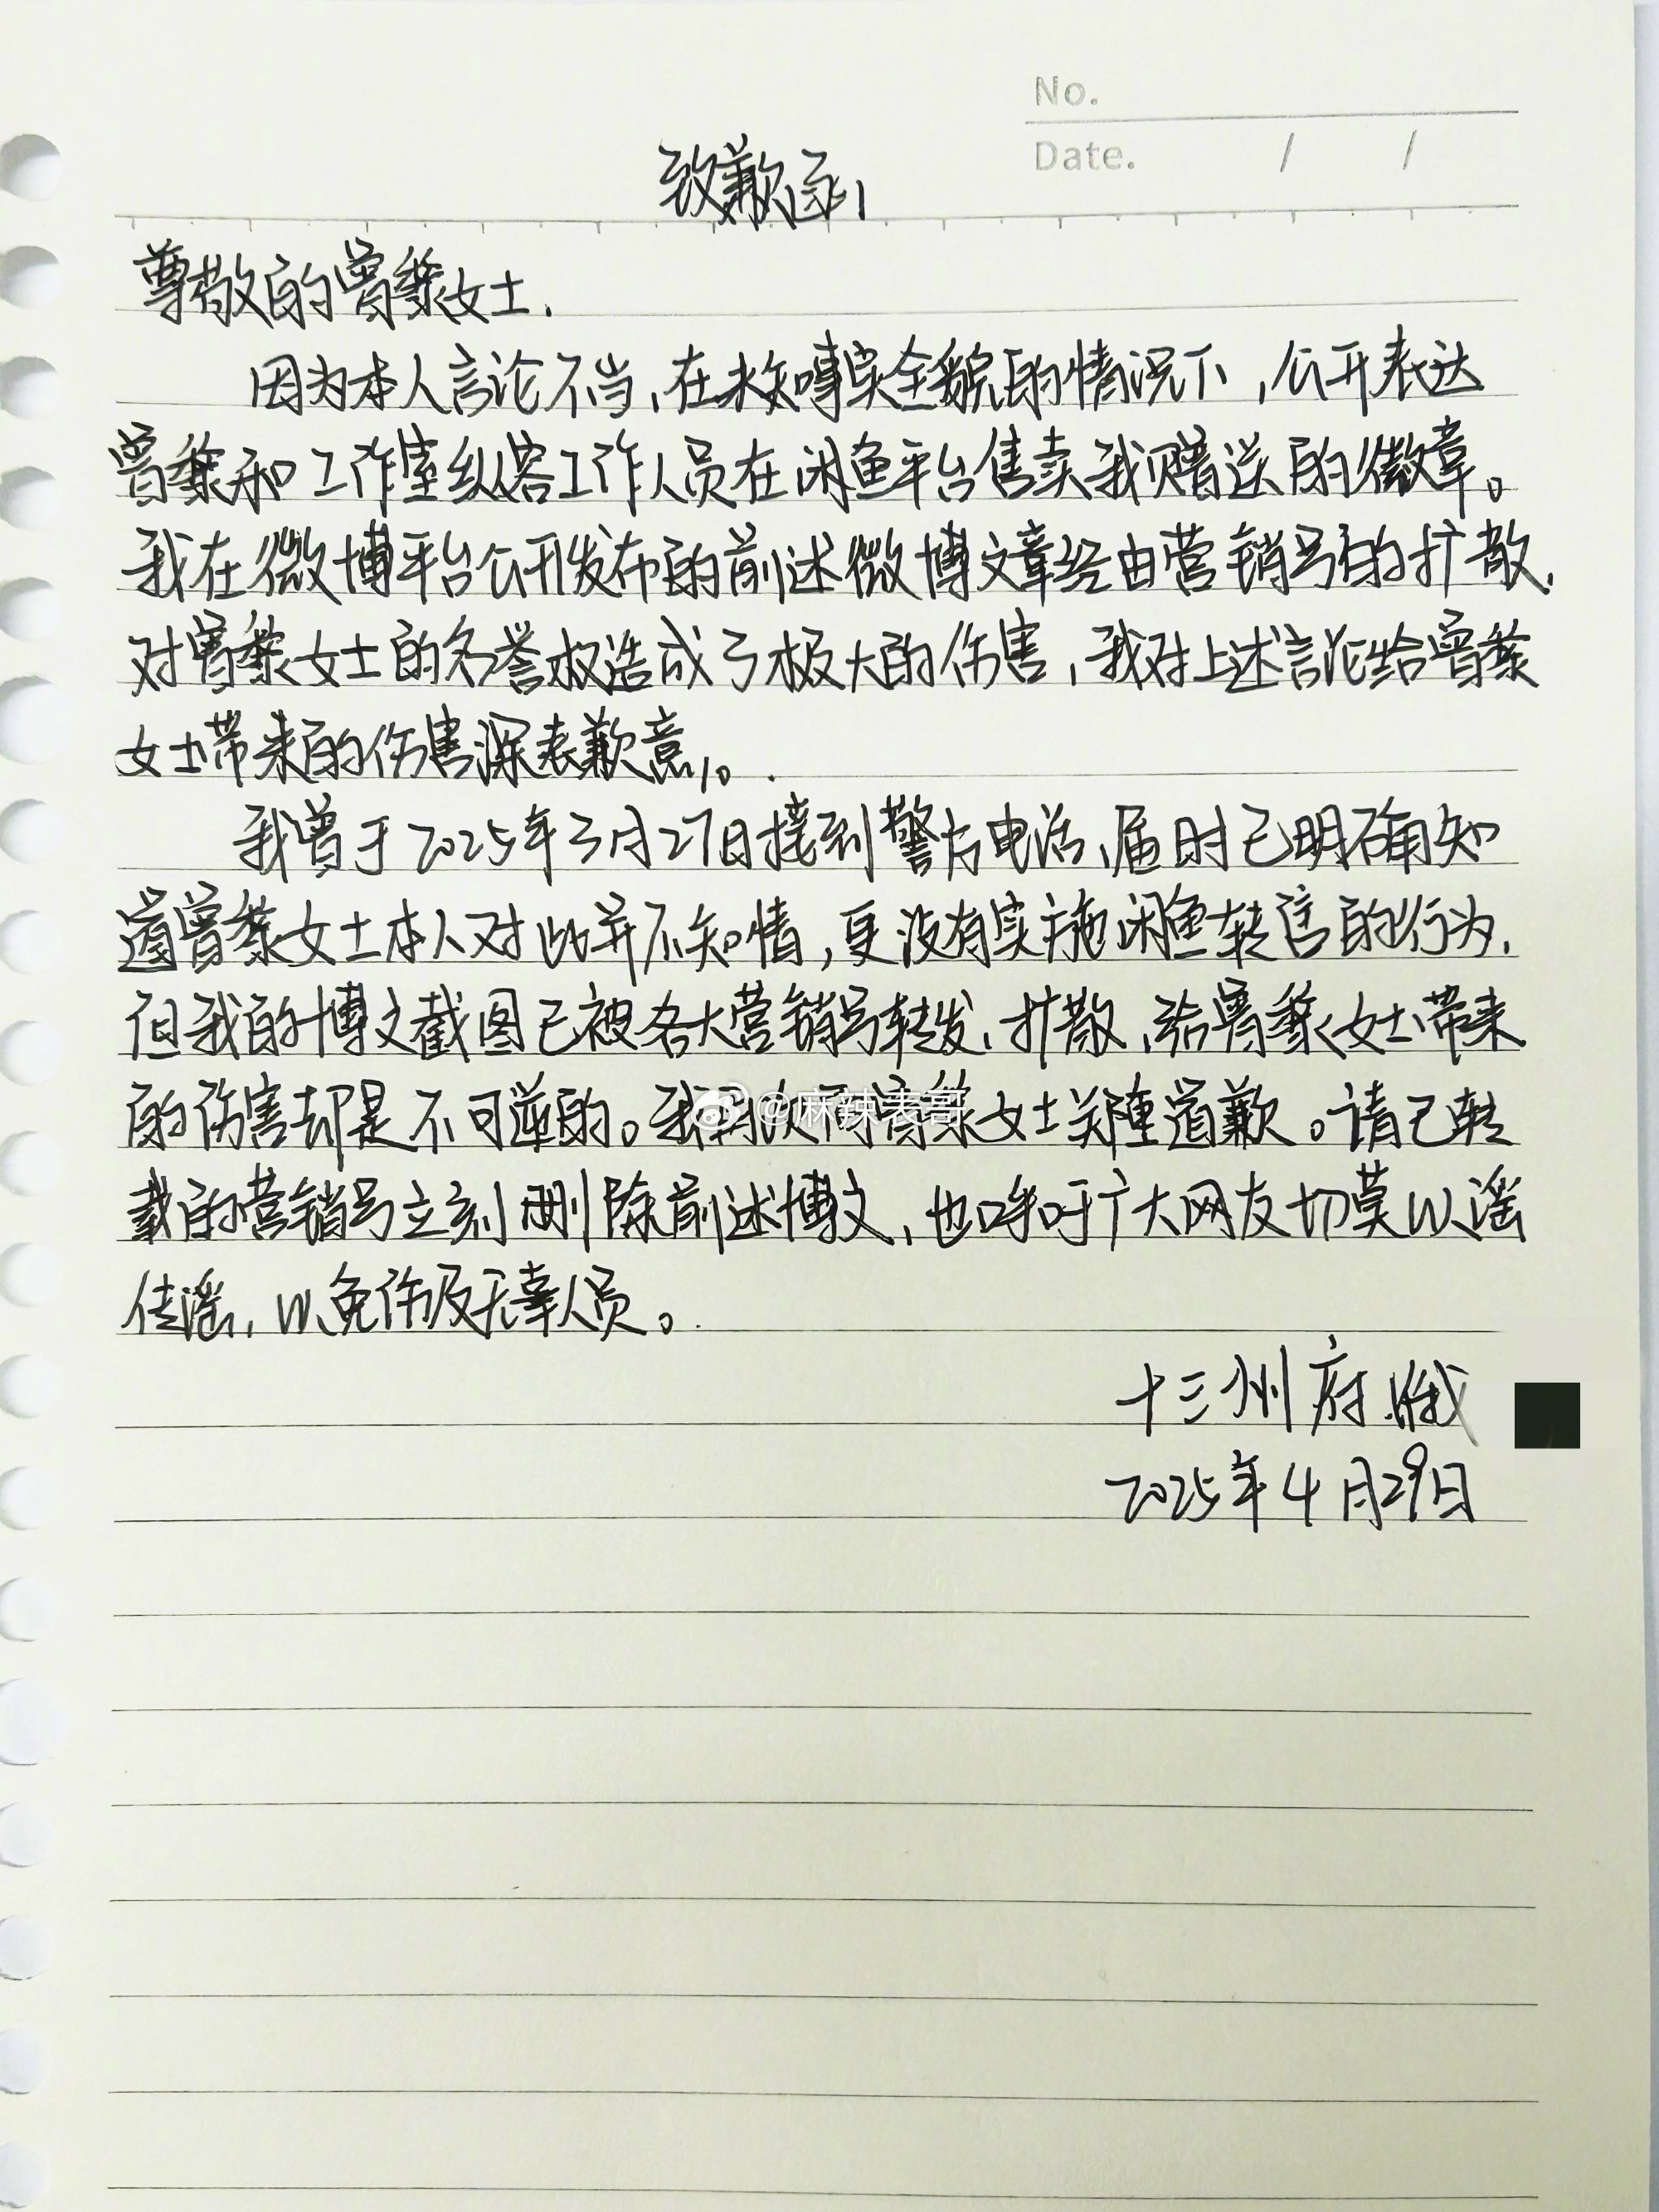 No.
Date. / /
致歉函
尊敬的曾黎女士,
因为本人言论不当,在未知事实全貌的情况下,公开表达
曾黎和工作室纵容工作人员在闲鱼平台售卖我赠送的徽章。
我在微博平台公开发布的前述微博文章经由营销号的扩散,
对曾黎女士的名誉权造成了极大的伤害,我对上述言论给曾黎
女士带来的伤害深表歉意。
我曾于2025年3月27日接到警方电话,届时已明确知
道曾黎女士本人对此并不知情,更没有实施闲鱼转售的行为,
但我的博文截图已被各大营销号转发、扩散,给曾黎女士带来
的伤害却是不可逆的。我再次向曾黎女士郑重道歉。请已转
@麻辣表哥
载的营销号立刻删除前述博文,也呼吁广大网友切莫以谣
传谣,以免伤及无辜人员。
十三州府
2025年4月29日